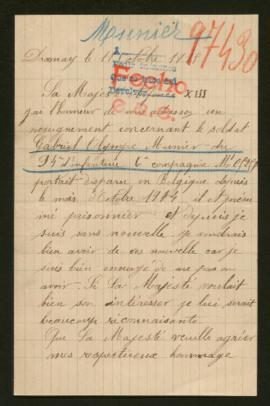 Munier
97430
Dramay le 11 octobre 19
Fecho
Sa Majesté XIII
j'ai l'honneur de vous adresser un
renseignement concernant le soldat
Gabriel Olympe Munier du
94e d'infanterie 6e compagnie Mle
portait disparu en Belgique depuis
le mois d'Octobre 1914 il et
mé prisonnier et depuis je
suis sans nouvelle je voudrais
bien avoir de ces nouvelle car je
suis bien ennuyé de ne pas en
avoir. Si Sa Majesté voulait
bien son intéresser je lui serait
beaucoup réconnaissante
Que Sa Majesté veuille agréer
mes respectueux hommage